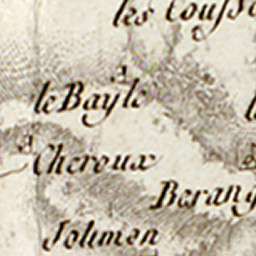 les Couss
le Bayle
Cheroux
Berang
Jolimon